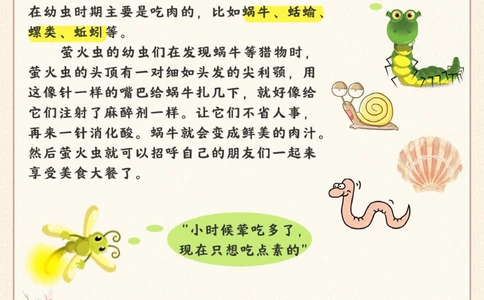 在幼虫时期主要是吃肉的，比如蜗牛、蛞蝓、
螺类、蚯蚓等。
萤火虫的幼虫们在发现蜗牛等猎物时，
萤火虫的头顶有一对细如头发的尖利颚，用
这像针一样的嘴巴给蜗牛扎几下，就好像给
它们注射了麻醉剂一样。让它们不省人事，
再来一针消化酸。蜗牛就会变成鲜美的肉汁。
然后萤火虫就可以招呼自己的朋友们一起来
享受美食大餐了。
“小时候荤吃多了，
现在只想吃点素的”